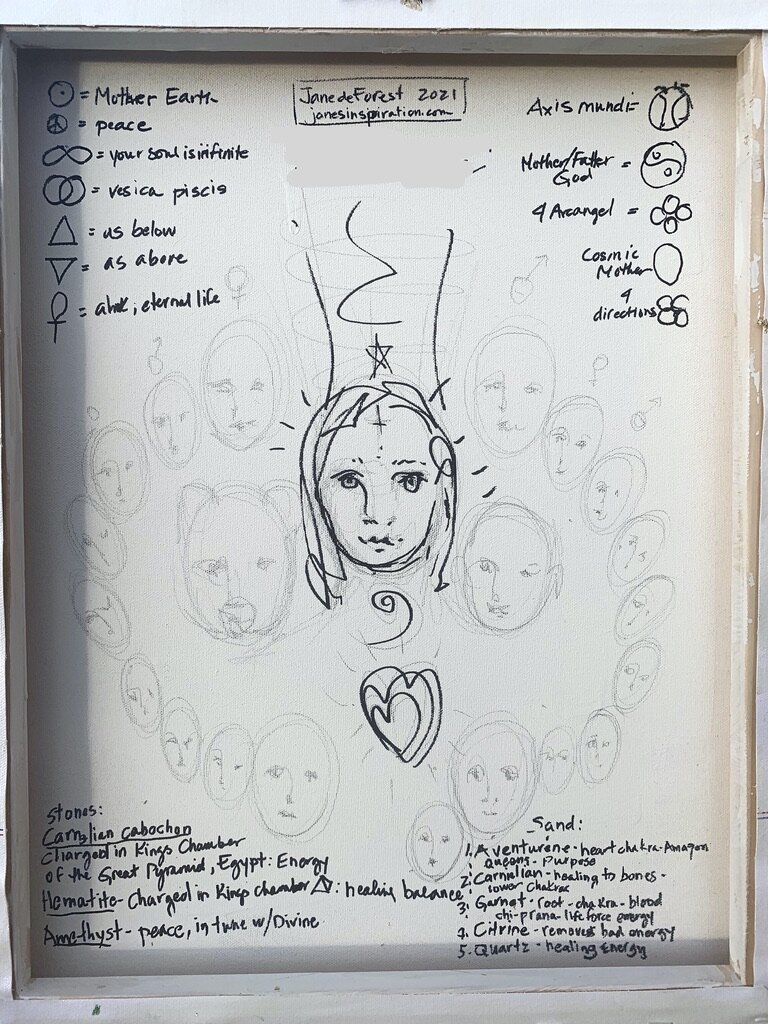 = Mother Earth
= peace
= your soul is infinite
= vesica piscis
= us below
= as above
= ahk, eternal life
Jane deForest 2021
janesinspiration.com
Axis mundi =
Mother/Father =
God
4 Arcangel =
Cosmic
Mother
4
directions
Stones:
Carnelian cabochon
Charged in Kings Chamber
of the Great Pyramid, Egypt: Energy
Hematite - Charged in Kings chamber : healing balance
Amethyst - peace, in tune w/Divine
Sand:
1. Aventurine - heart chakra - Amazon
queens - Purpose
2. Carnelian - healing to bones -
lower chakra
3. Garnet - root - chakra - blood
chi - prana - life force energy
4. Citrine - removes bad energy
5. Quartz - healing energy